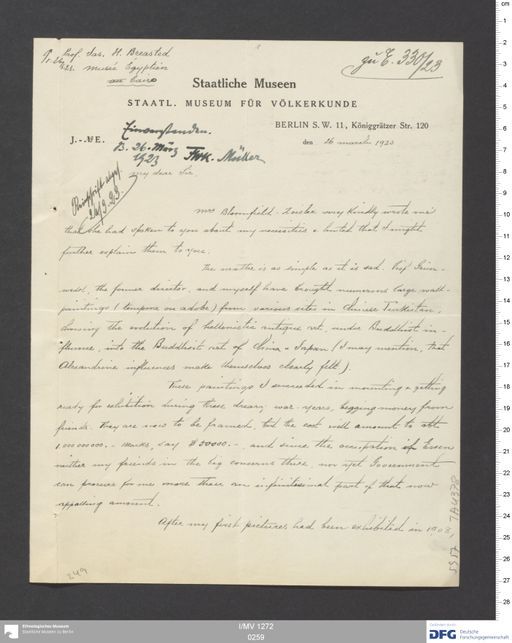 Prof. Jas. H. Breasted
Musée Egyptien
au Caire
zu E. 330/23
Staatliche Museen
STAATL. MUSEUM FÜR VÖLKERKUNDE
BERLIN S.W. 11, Königgrätzer Str. 120
J.-№ E.
den 26 march 1923
Einverstanden.
B. 26. März
1923 FWK. Müller
My dear Sir,
Mrs Bloomfield very kindly wrote me
that she had spoken to you about my necessities & hinted that I might
further explain them to you.
The matter is as simple as it is sad. Prof. Grün-
wedel, the former director, and myself have brought numerous large wall-
paintings (tempera on adobe) from various sites in Chinese Turkistan,
showing the evolution of hellenistic antique art, under Buddhist in-
fluence, into the Buddhist art of China & Japan (I may mention, that
Alexandrine influences make themselves clearly felt).
These paintings I succeeded in mounting & getting
ready for exhibition during these dreary war-years, begging money from
friends. They are now to be framed, but the cost will amount to abt
1.000.000.000.- marks, say $ 50000.-, and since the occupation of Essen
neither my friends in the big concerns there, nor yet Government
can procure for me more than an infinitesimal part of that now
appalling amount.
After my first pictures had been exhibited in 1908,
249
I/MV 1272
0259
Ethnologisches Museum
Staatliche Museen zu Berlin
DFG Deutsche
Forschungsgemeinschaft
cm
0
1
2
3
4
5
6
7
8
9
10
11
12
13
14
15
16
17
18
19
20
21
22
23
24
25
26
27
28